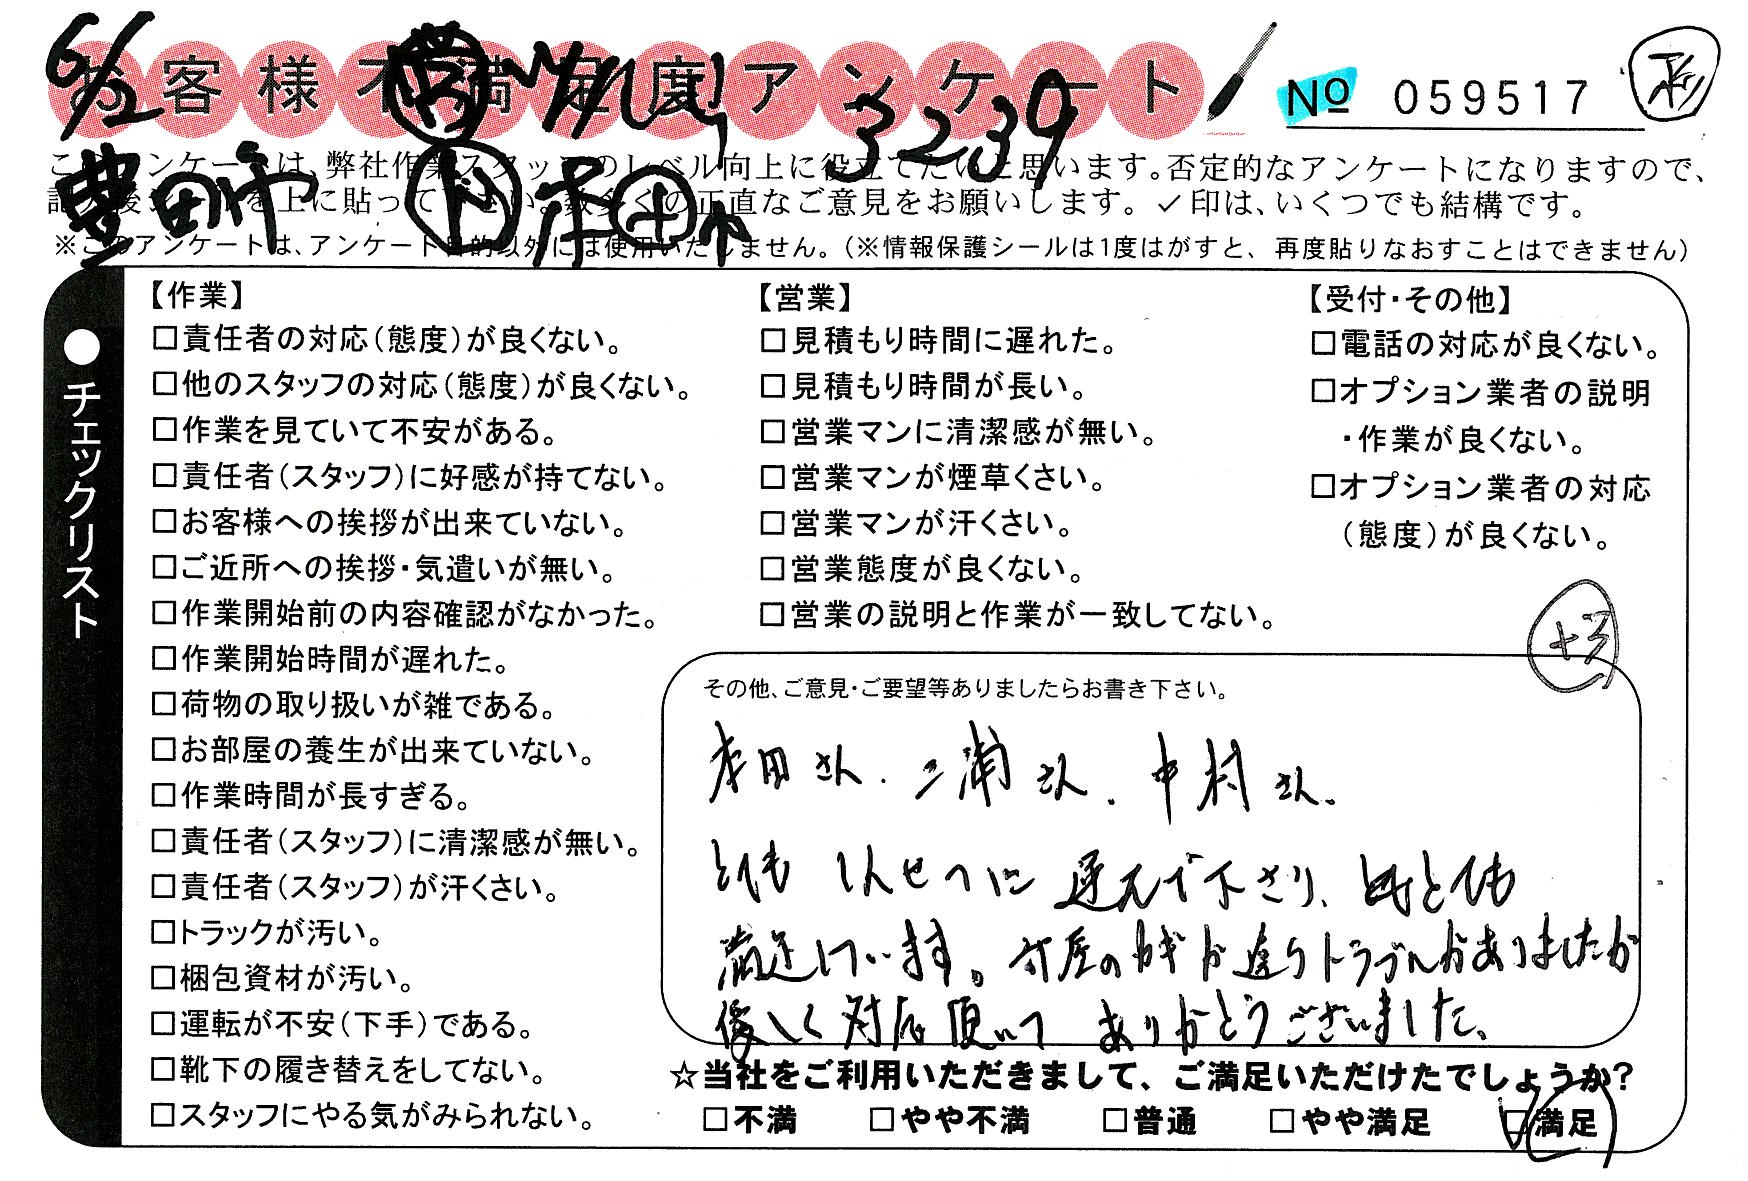 6/2
お客様不満足度アンケート
No 059517
3239
豊田市
このアンケートは、弊社作業スタッフのレベル向上に役立てたいと思います。否定的なアンケートになりますので、
記入後シールを上に貼って下さい。数多くの正直なご意見をお願いします。✓印は、いくつでも結構です。
※このアンケートは、アンケート目的以外には使用いたしません。(※情報保護シールは1度はがすと、再度貼りなおすことはできません)
●チェックリスト
【作業】
□責任者の対応(態度)が良くない。
□他のスタッフの対応(態度)が良くない。
□作業を見ていて不安がある。
□責任者(スタッフ)に好感が持てない。
□お客様への挨拶が出来ていない。
□ご近所への挨拶・気遣いが無い。
□作業開始前の内容確認がなかった。
□作業開始時間が遅れた。
□荷物の取り扱いが雑である。
□お部屋の養生が出来ていない。
□作業時間が長すぎる。
□責任者(スタッフ)に清潔感が無い。
□責任者(スタッフ)が汗くさい。
□トラックが汚い。
□梱包資材が汚い。
□運転が不安(下手)である。
□靴下の履き替えをしてない。
□スタッフにやる気がみられない。
【営業】
□見積もり時間に遅れた。
□見積もり時間が長い。
□営業マンに清潔感が無い。
□営業マンが煙草くさい。
□営業マンが汗くさい。
□営業態度が良くない。
□営業の説明と作業が一致してない。
【受付・その他】
□電話の対応が良くない。
□オプション業者の説明
・作業が良くない。
□オプション業者の対応
(態度)が良くない。
その他、ご意見・ご要望等ありましたらお書き下さい。
本田さん.三浦さん.中村さん.
とても ていねいに 運んで下さり、とても
満足しています。部屋のカギが違うトラブルがありましたが
優しく対応頂いて ありがとうございました。
☆当社をご利用いただきまして、ご満足いただけたでしょうか?
□不満 □やや不満 □普通 □やや満足 □満足